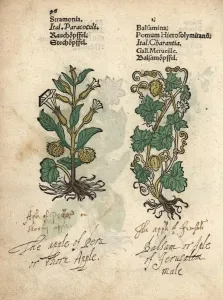 Stramonia.
Ital. Paracoculi.
Rauchöpffel.
Stechöpffel.
Balsamina:
Pomum Hierosolymitanū:
Ital. Charantia.
Gall. Merueille.
Balsamöpffel.
The apple of Peru
or Thorn Apple.
Balsam or
of Jerusalem
male